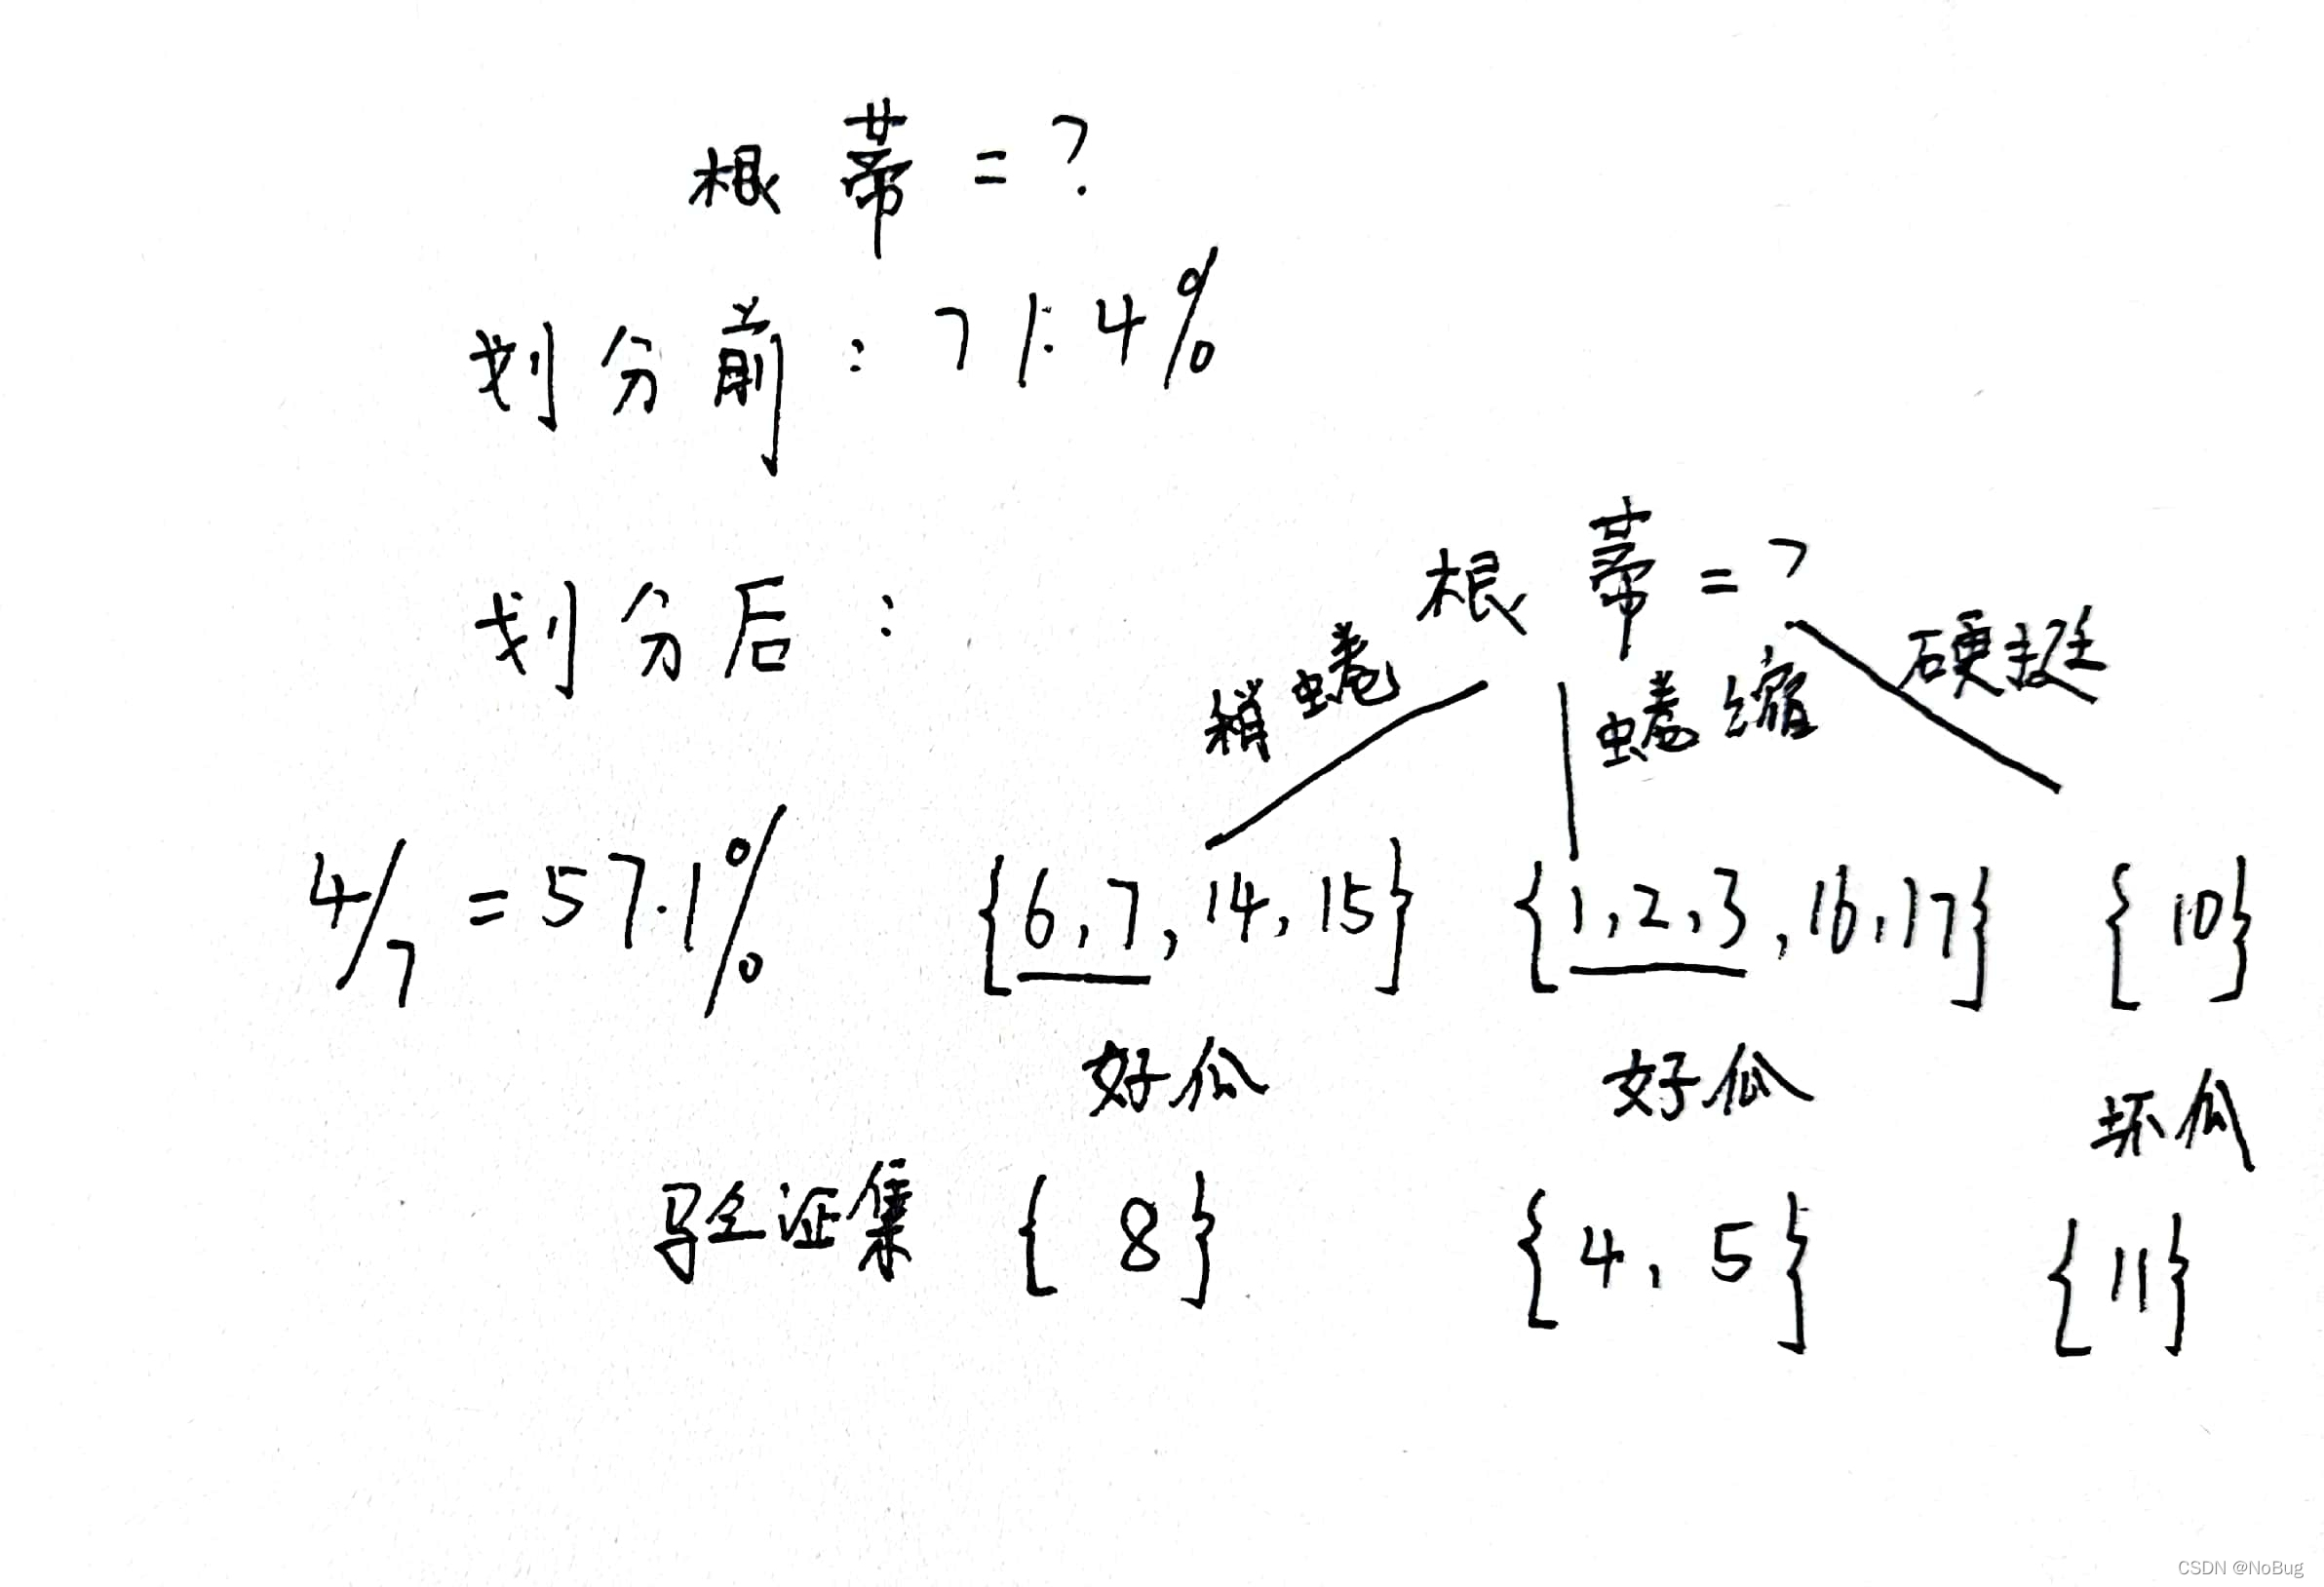 根蒂=?
划分前:71.4%
划分后:
根蒂=?
稍蜷
蜷缩
硬挺
4/7=57.1%
{6,7,14,15}
{1,2,3,16,17}
{10}
好瓜
好瓜
坏瓜
验证集
{8}
{4,5}
{11}
CSDN @NoBug